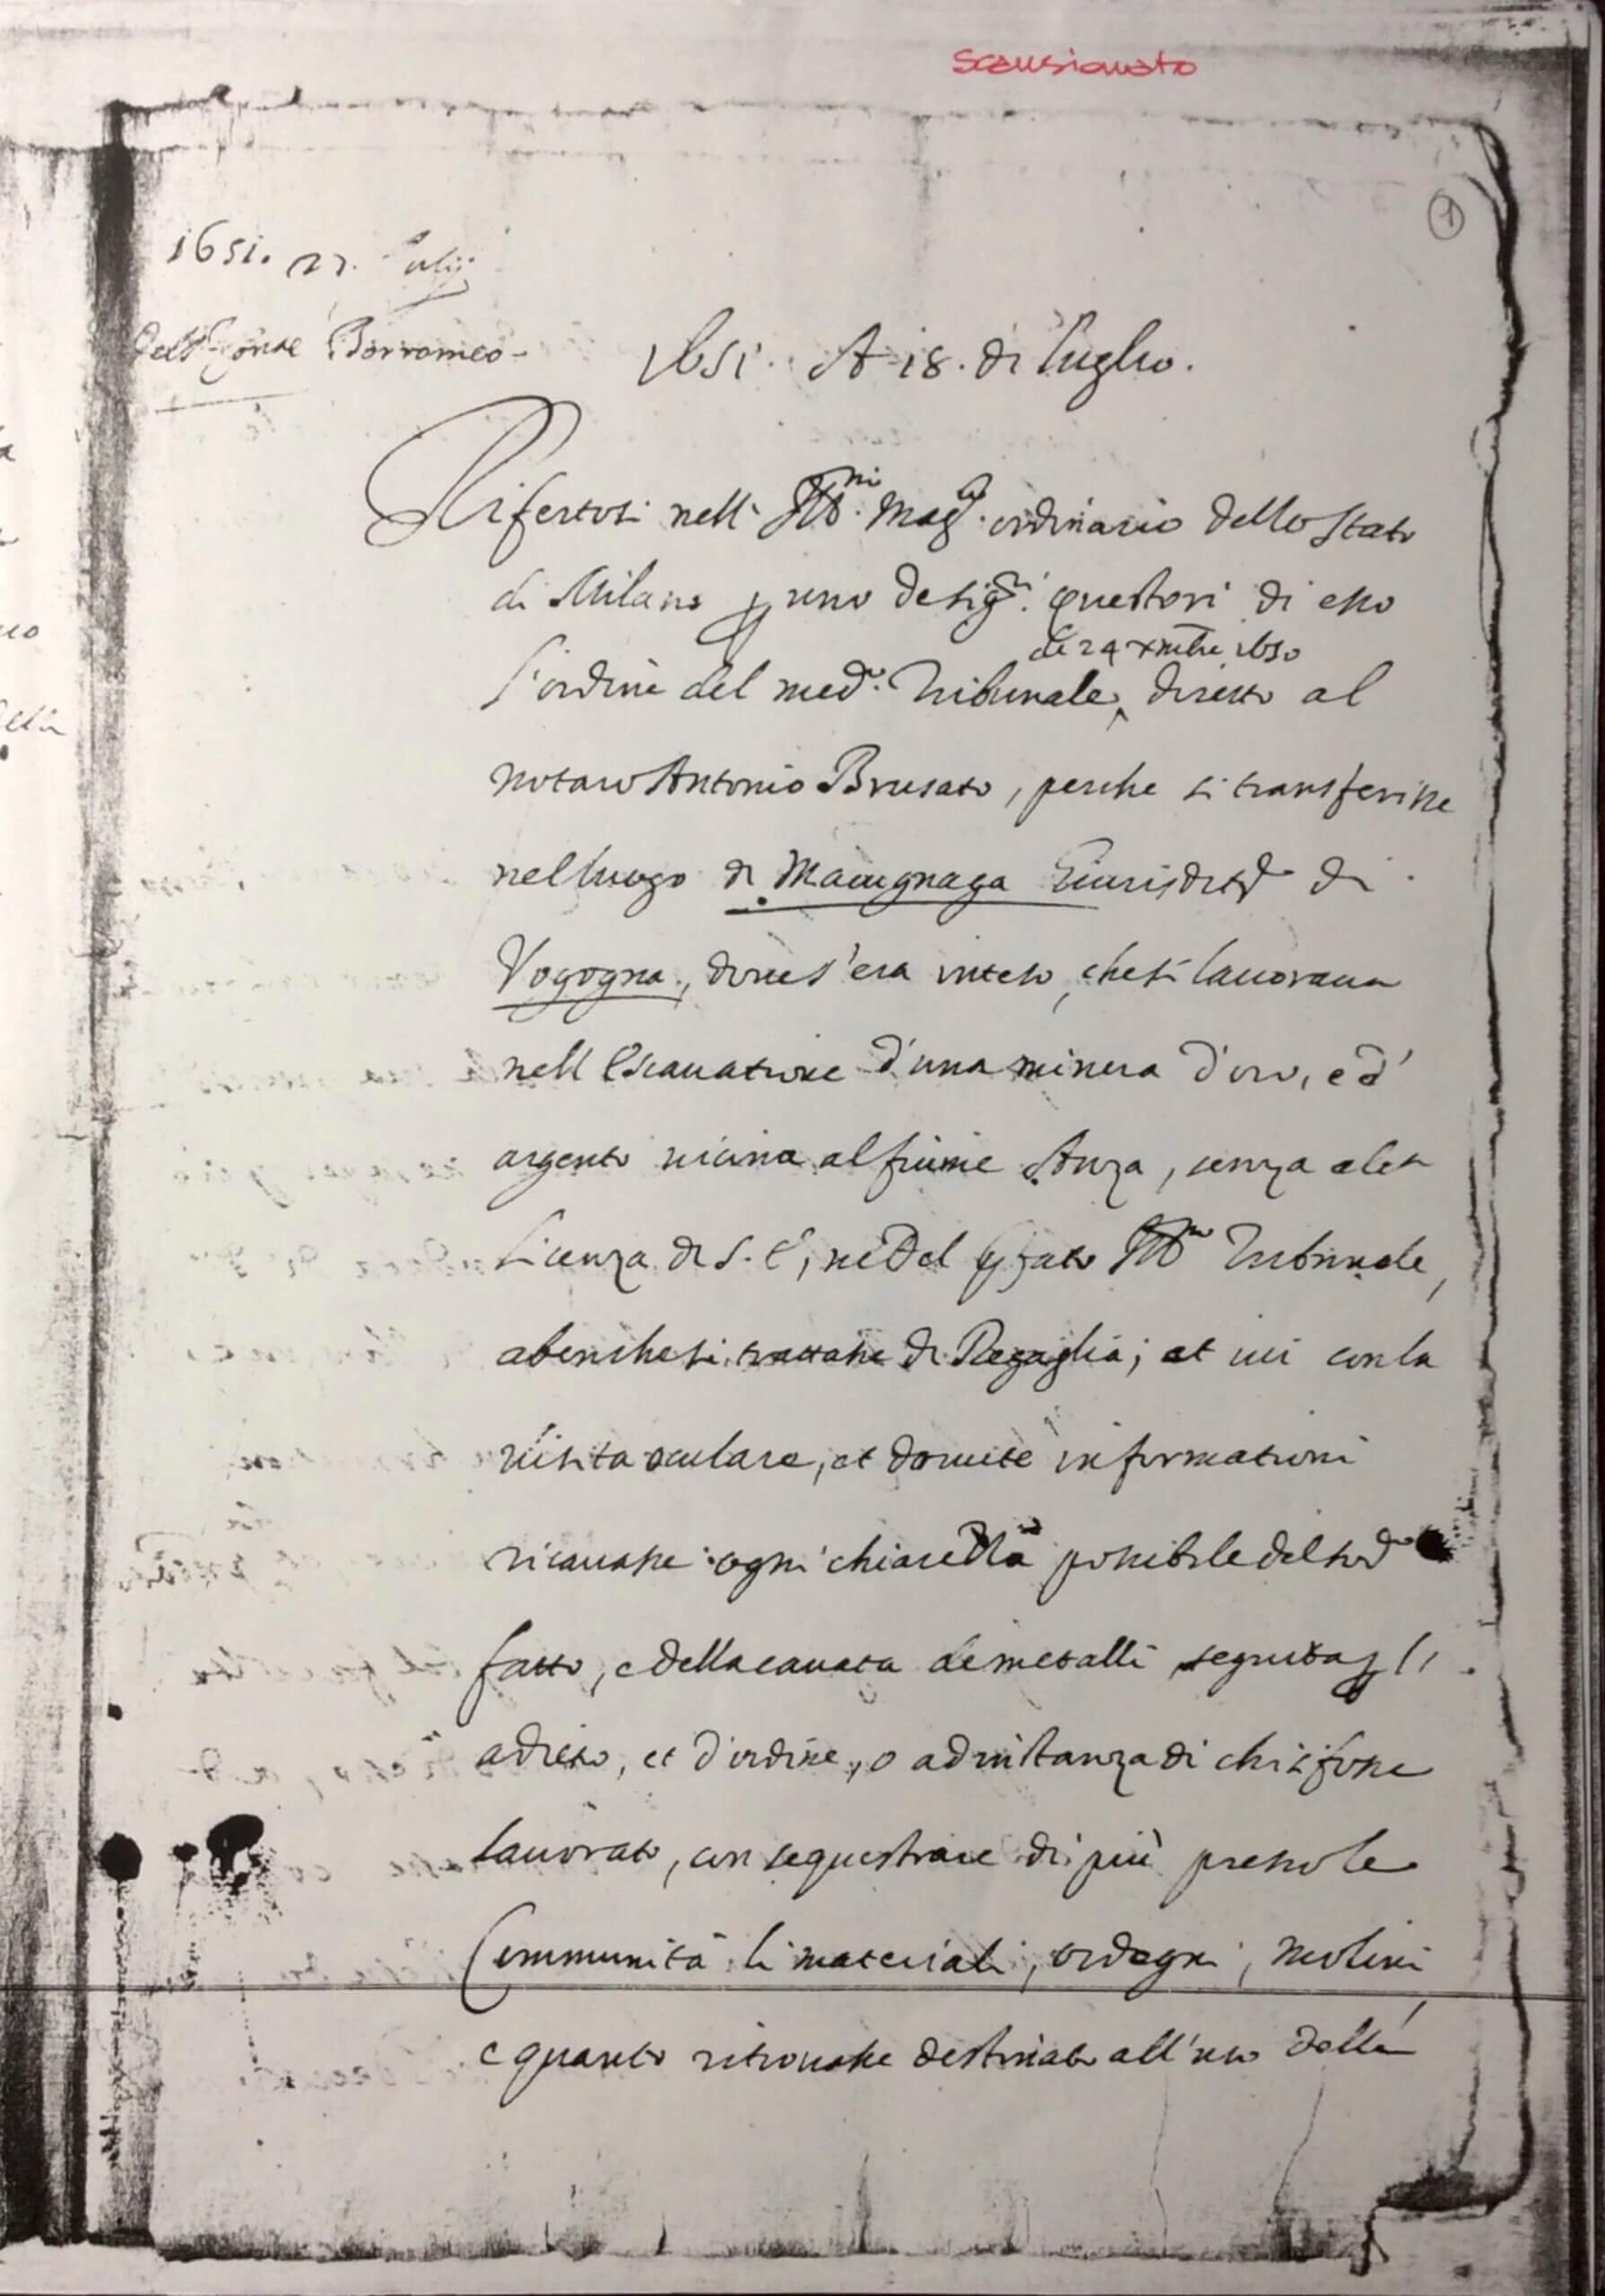 scansionato
1
1651. 27. Julij
Del S. Conte Borromeo-
1651. A 18. di luglio.
Rifertosi nell' Ill.mi Mag.to ordinario dello stato
di Milano p uno de sig.ri questori di esso
de 24 xmbre 1650
l'ordine del med.o Tribunale, diretto al
notaro Antonio Brusato, perche si transferisse
nel luogo di Macugnaga Giurisditt.e di
Vogogna, doue s'era inteso, che si lauoraua
nell'escauatione d'una minera d'oro, e d'
argento uicina al fiume Anza, senza alcª
licenza di S. E, ne del pfato Ill.mo Tribunale,
abenche si trattasse di Regaglia; et iui con la
uisita oculare, et douute informationi
ricauasse ogni chiarezza possibile del sud.o
fatto, e della cauata de metalli seguita p l'
adietro, et d'ordine, o admistanza di chi si fosse
lauorato, con sequestrare di più presso le
Communità li materiali, ordegni, molini
e quanto ritrouasse destinato all'uso della